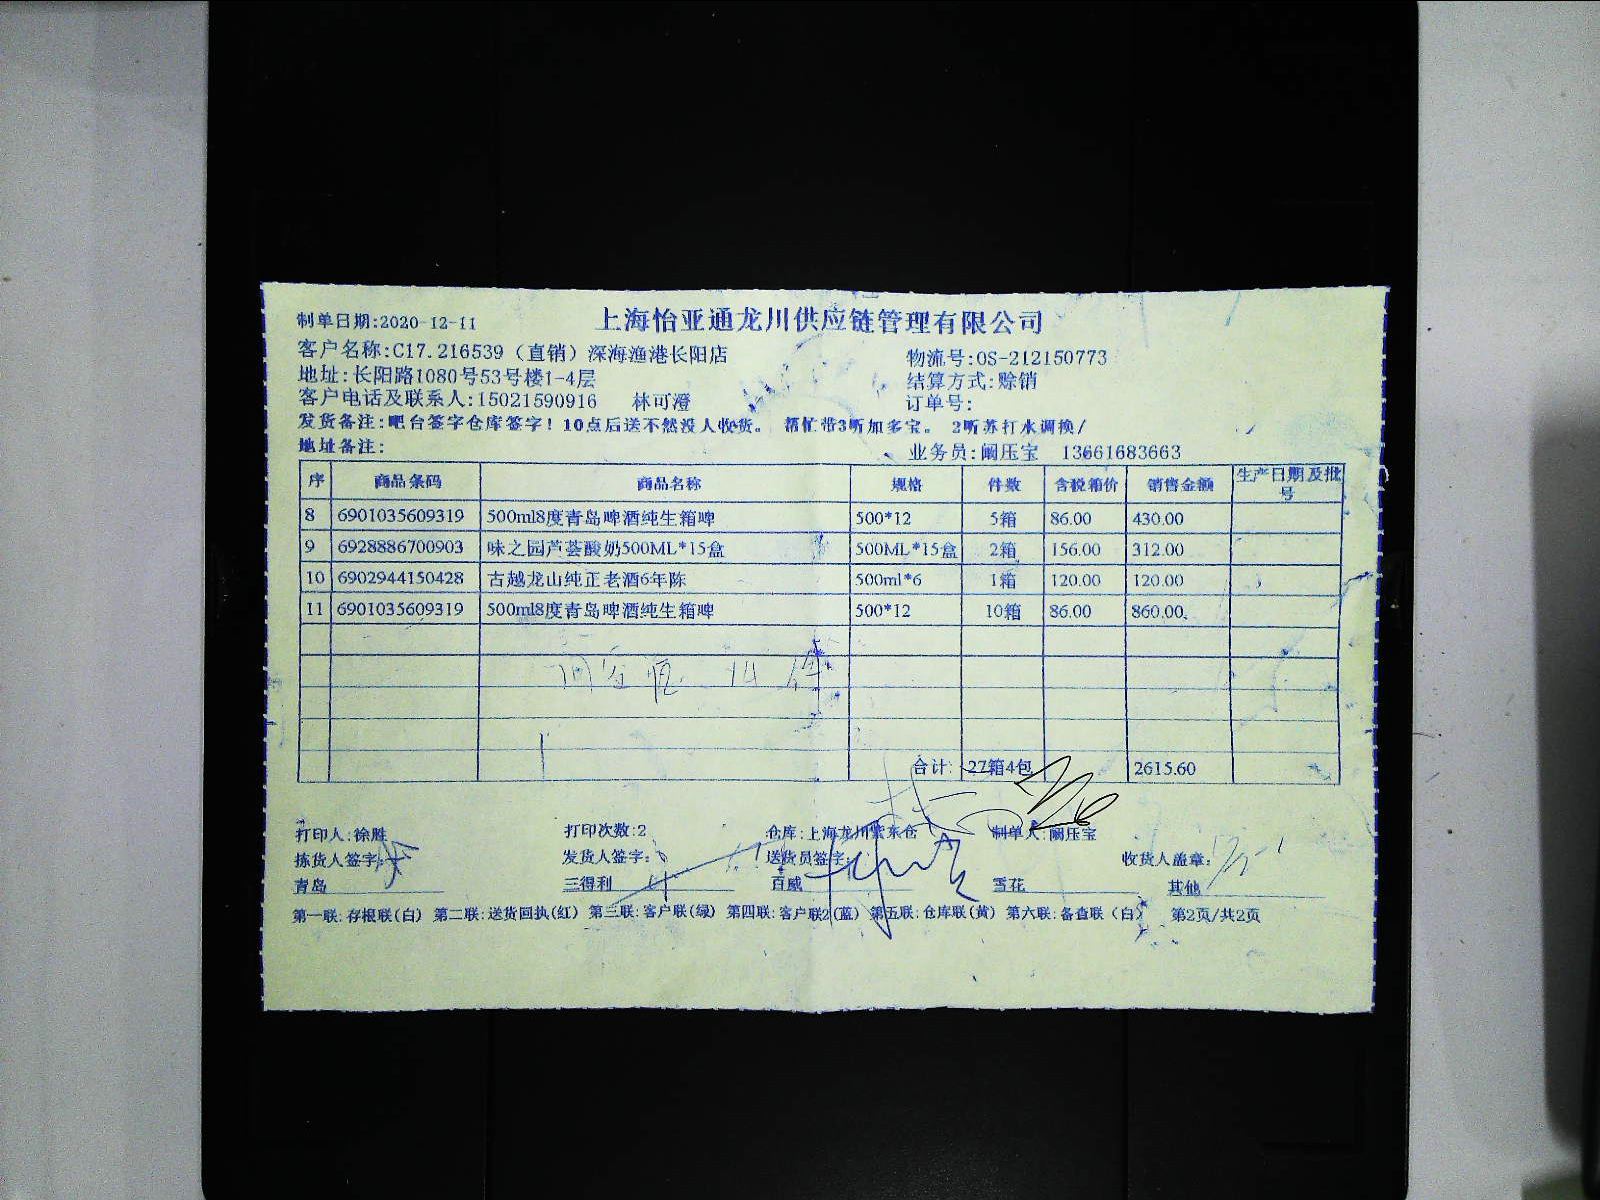 制单日期:2020-12-11
上海怡亚通龙川供应链管理有限公司
客户名称:C17.216539（直销）深海渔港长阳店 物流号:OS-212150773
地址:长阳路1080号53号楼1-4层 结算方式:赊销
客户电话及联系人:15021590916 林可澄 订单号:
发货备注:吧台签字仓库签字！10点后送不然没人收货。 帮忙带3听加多宝。 2听苏打水调换/
地址备注: 业务员:阚压宝 13661683663
序 商品条码 商品名称 规格 件数 含税箱价 销售金额 生产日期及批号
8 6901035609319 500ml8度青岛啤酒纯生箱啤 500*12 5箱 86.00 430.00
9 6928886700903 味之园芦荟酸奶500ML*15盒 500ML*15盒 2箱 156.00 312.00
10 6902944150428 古越龙山纯正老酒6年陈 500ml*6 1箱 120.00 120.00
11 6901035609319 500ml8度青岛啤酒纯生箱啤 500*12 10箱 86.00 860.00
合计: 27箱4包 2615.60
打印人:徐胜 打印次数:2 仓库:上海龙川紫东仓 制单人:阚压宝
拣货人签字: 发货人签字: 送货员签字: 收货人盖章:
青岛 三得利 百威 雪花 其他
第一联:存根联(白) 第二联:送货回执(红) 第三联:客户联(绿) 第四联:客户联2(蓝) 第五联:仓库联(黄) 第六联:备查联（白） 第2页/共2页